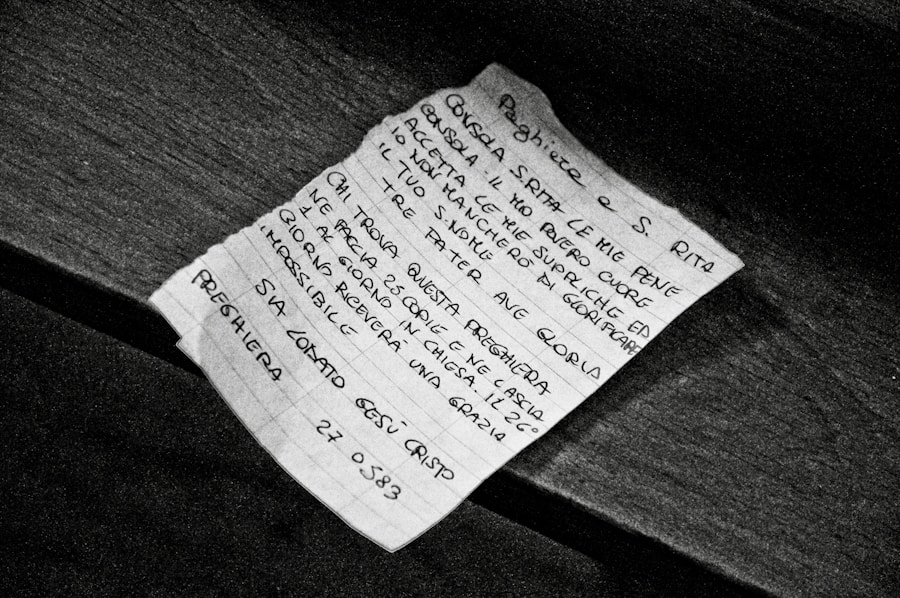 Preghiera a S. RITA
CONSOLA S.RITA LE MIE PENE
CONSOLA IL MIO POVERO CUORE
ACCETTA LE MIE SUPPLICHE ED
IO NON MANCHERÒ DI GLORIFICARE
IL TUO S.NOME
TRE PATER AVE GLORIA
CHI TROVA QUESTA PREGHIERA
NE FACCIA 25 COPIE E NE LASCIA
1 AL GIORNO IN CHIESA. IL 26°
GIORNO RICEVERÀ UNA GRAZIA
IMPOSSIBILE
SIA LODATO GESÙ CRISTO
PREGHIERA 27